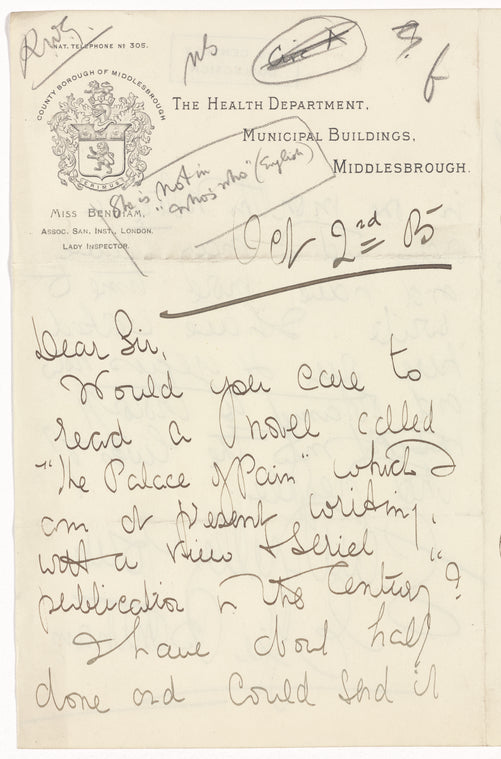 RWG
NAT. TELEPHONE Nº 305.
COUNTY BOROUGH OF MIDDLESBROUGH
ERIMUS
THE HEALTH DEPARTMENT,
MUNICIPAL BUILDINGS,
MIDDLESBROUGH.
MISS BENTHAM,
ASSOC. SAN. INST., LONDON.
LADY INSPECTOR.
She is not in
"Who's Who" (English)
Oct 2nd 05
Dear Sir,
Would you care to
read a novel called
"The Palace of Pain" which I
am at present writing,
with a view to serial
publication in "The Century"?
I have about half
done and could send it